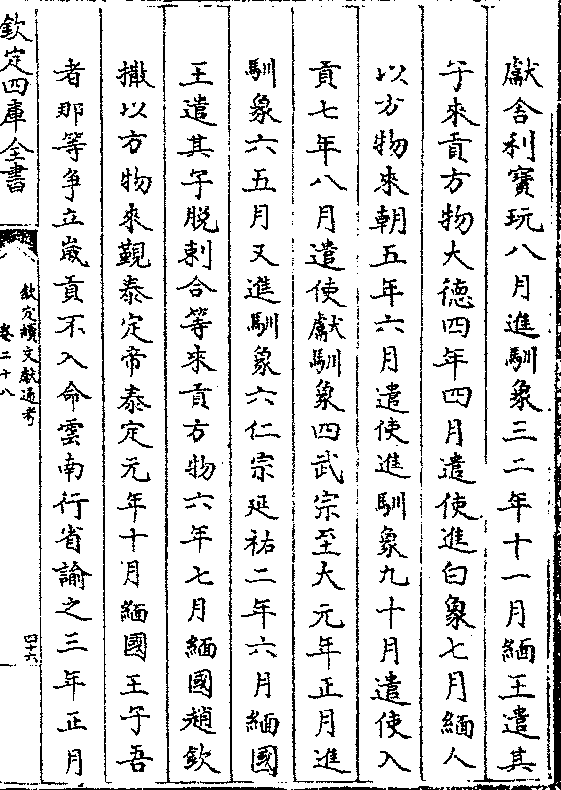 獻舍利寳玩八月進馴象三二年十一月緬王遣其
子來貢方物大德四年四月遣使進白象七月緬人
以方物來朝五年六月遣使進馴象九十月遣使入
貢七年八月遣使獻馴象四武宗至大元年正月進
馴象六五月又進馴象六仁宗延祐二年六月緬國
王遣其子脱剌合等來貢方物六年七月緬國趙欽
撒以方物來覲泰定帝泰定元年十月緬國王子吾
者那等爭立嵗貢不入命雲南行省諭之三年正月
欽定四庫全書
欽定續文獻通考
卷二十八
四十六